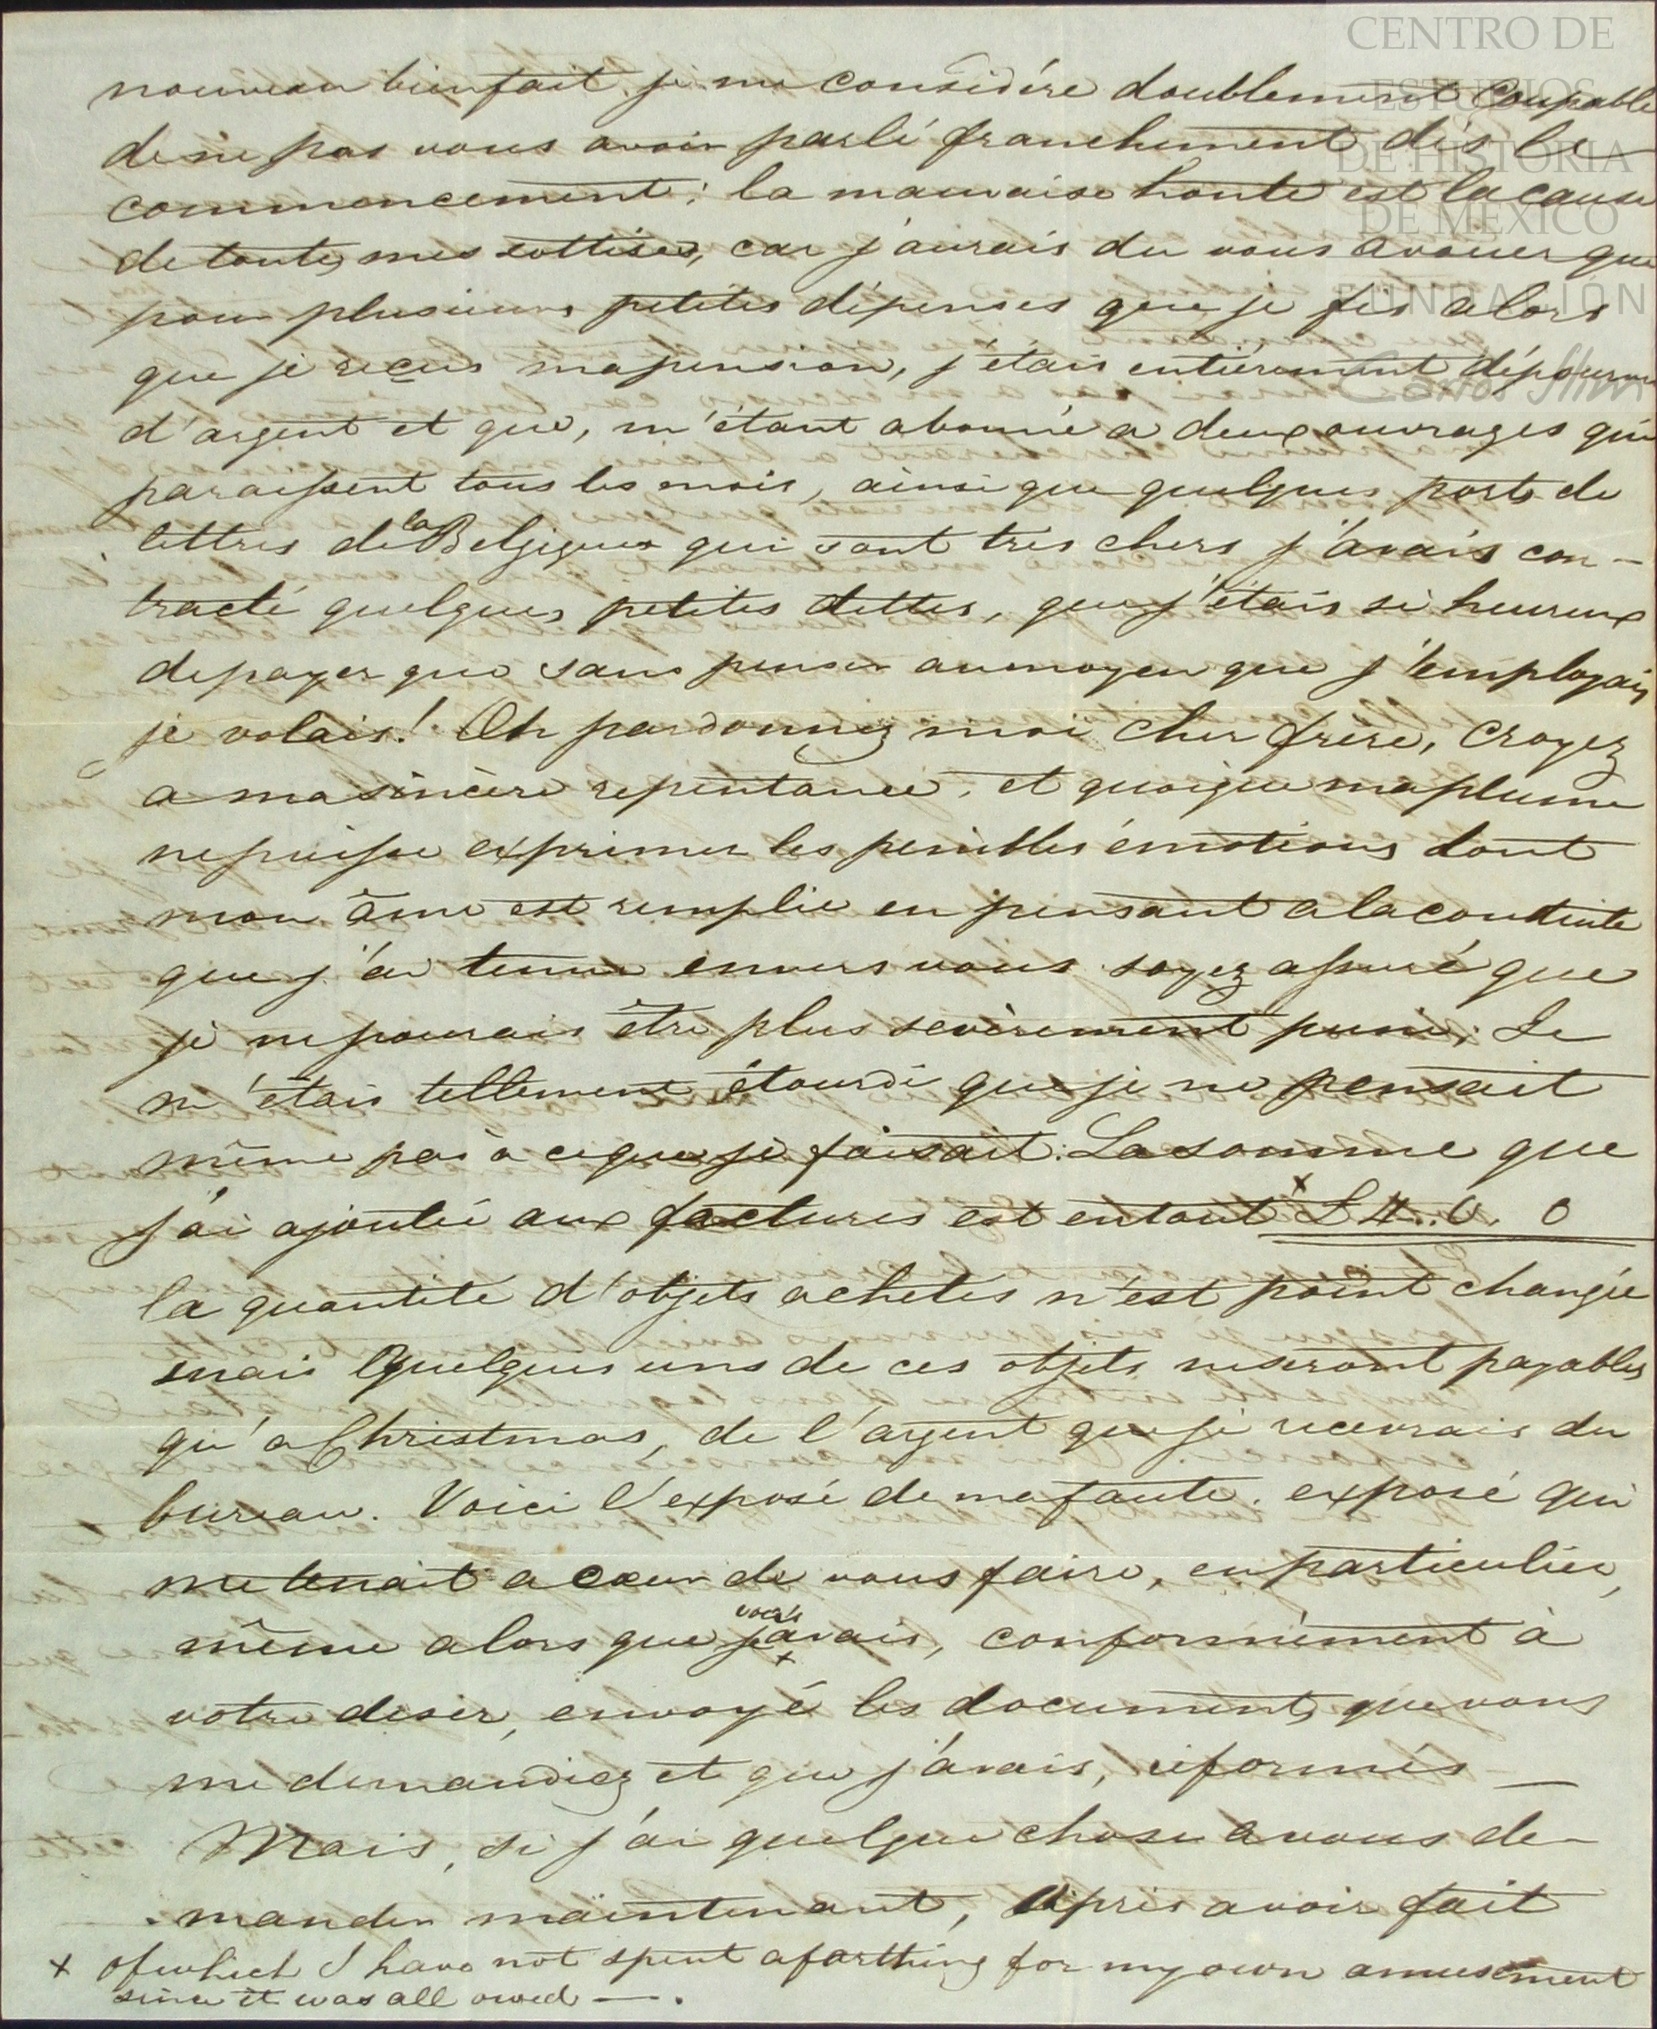 CENTRO DE
ESTUDIOS
DE HISTORIA
DE MÉXICO
FUNDACIÓN
Carlos Slim
nouveau bienfait, je me considère doublement coupable
de ne pas vous avoir parlé franchement dès le
commencement; la mauvaise honte est la cause
de toutes mes sottises, car j'aurais du vous avouer que
pour plusieurs petites dépenses que je fis alors
que je reçus ma pension, j'étais entièrement dépourvu
d'argent et que, m'étant abonné a deux ouvrages qui
paraissent tous les mois, ainsi que quelques ports de
lettres de la Belgique qui sont très chers j'avais con-
tracté quelques petites dettes, que j'étais si heureux
de payer que sans penser au moyen que j'employais,
je volais! Oh pardonnez moi cher frère, croyez
a ma sincère repentance, et quoique ma plume
ne puisse exprimer les penibles émotions dont
mon âme est remplie en pensant a la conduite
que j'ai tenue envers vous soyez assuré que
je ne pourais être plus sevèrement puni; Je
m'étais tellement étourdi que je ne pensait
même pas à ce que je faisait. La somme que
j'ai ajoutée aux factures est en tout x £4..0. 0
la quantité d'objets achetés n'est point changée
mais quelques uns de ces objets ne seront payables
qu'a Christmas, de l'argent que je recevrais du
bureau. Voici l'exposé de ma faute. exposé qui
me tenait a cœur de vous faire, en particulier,
même alors que je vous avais, conformément à
votre desir, envoyé les documents que vous
me demandiez et que j'avais, reformés —
Mais, si j'ai quelque chose a vous de-
mander maintenant, après avoir fait
x of which I have not spent a farthing for my own amusement
since it was all owed —.